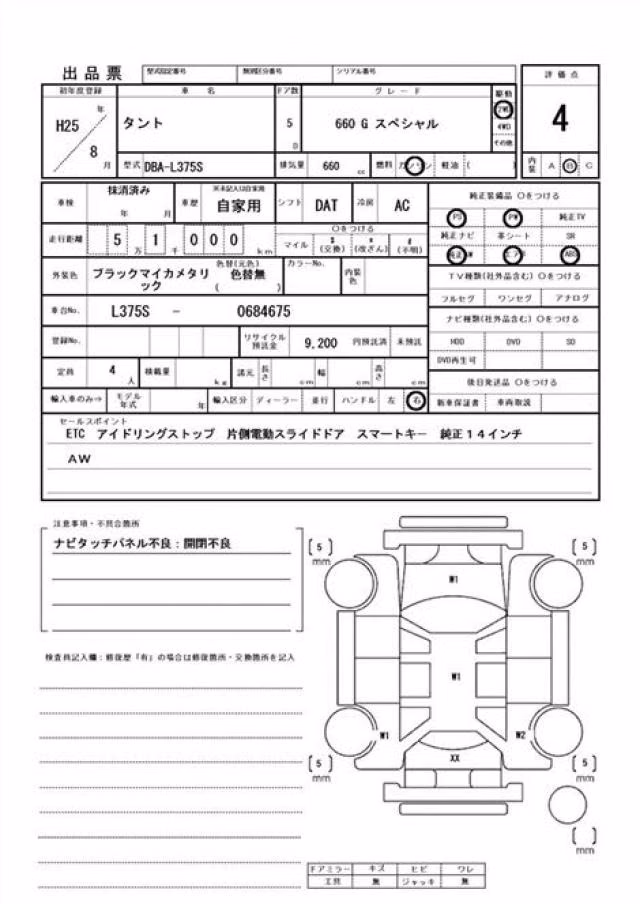 出品票 型式指定番号 類別区分番号 シリアル番号
評価点
初年度登録 車名 ドア数 グレード 駆動
H25 年 8 月 タント 5 D 660 G スペシャル 2WD 4WD その他
4
型式 DBA-L375S 排気量 660 cc 燃料 ガソリン 軽油 ( )
内装 A B C
車検 抹消済み 年 月 車歴 ※未記入は自家用 自家用 シフト DAT 冷房 AC
純正装備品 ○をつける
PS PW 純正TV
走行距離 5万 1千 000 km ○をつける マイル $(交換) *(改ざん) #(不明)
純正ナビ 革シート SR
純正AW エアB ABS
外装色 ブラックマイカメタリック 色替(元色) 色替無 ( ) カラーNo. 内装色
TV種類(社外品含む) ○をつける
フルセグ ワンセグ アナログ
車台No. L375S - 0684675
ナビ種類(社外品含む) ○をつける
登録No. リサイクル預託金 9,200 円預託済 未預託
HDD DVD SD
DVD再生可
定員 4 人 積載量 kg 諸元 長さ cm 幅 cm 高さ cm
後日発送品 ○をつける
輸入車のみ⇒ モデル年式 年 輸入区分 ディーラー 並行 ハンドル 左 右
新車保証書 車両取説
セールスポイント
ETC アイドリングストップ 片側電動スライドドア スマートキー 純正14インチ
AW
注意事項・不具合箇所
ナビタッチパネル不良:開閉不良
検査員記入欄:修復歴「有」の場合は修復箇所・交換箇所を記入
[5] mm
[5] mm
W1
W1
W1
W2
XX
[5] mm
[5] mm
[ ] mm
ドアミラー キズ ヒビ ワレ
工具 無 ジャッキ 無